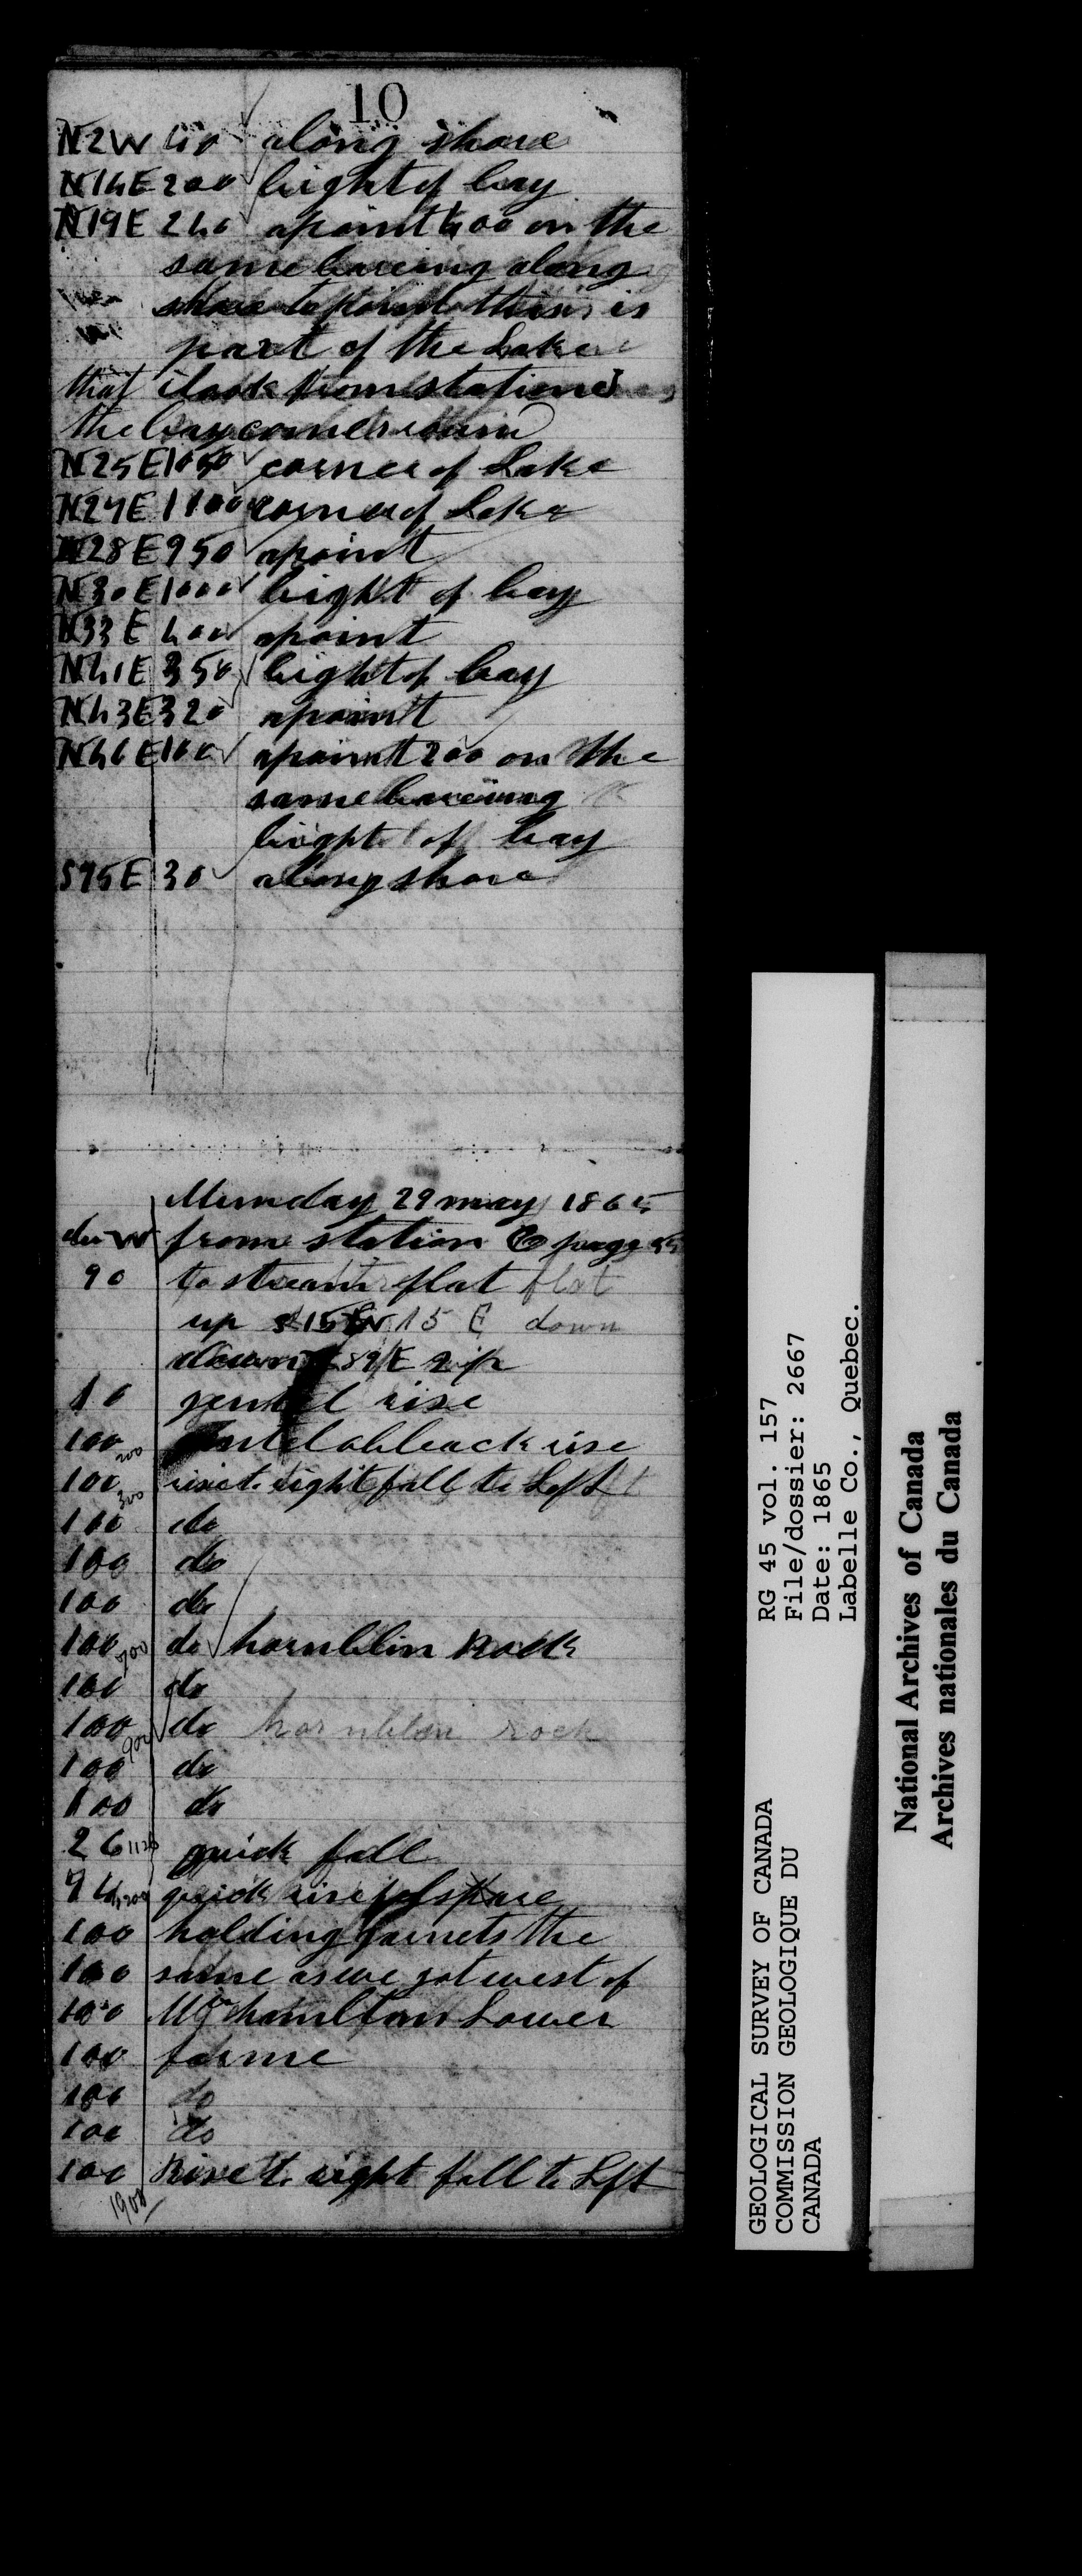 10
N2W 40 along shore
N14E 200 bight of bay
N19E 240 apoint 400 on the
same bearing along
shore to point this is
part of the Lake
that i took from station
the bay comes
N25E 1050 corner of Lake
N27E 1100 corner of Lake
N28E 950 apoint
N30E 1000 bight of bay
N33E 400 apoint
N41E 350 bight of bay
N43E 320 apoint
N46E 100 apoint 200 on the
same bearing
bight of bay
S75E 30 along shore
Munday 29 may 1865
du W from station page 55
90 to stream flat flat
up S15W 15 E down
down S9E
10 gentel rise
100 200 rise
100 300 rise to right fall to Left
100 do
100 do
100 do
100 700 do hornblin Rock
100 do
100 900 do hornblin rock
100 do
100 do
26 1126 quick fall
74 1200 quick rise
100 holding garnets the
100 same as we got west of
100 Mr hamilton Lower
100 farme
100 do
100 do
100 Rise to right fall to Left
1900
GEOLOGICAL SURVEY OF CANADA RG 45 vol. 157
COMMISSION GEOLOGIQUE DU File/dossier: 2667
CANADA Date: 1865
Labelle Co., Quebec.
National Archives of Canada
Archives nationales du Canada